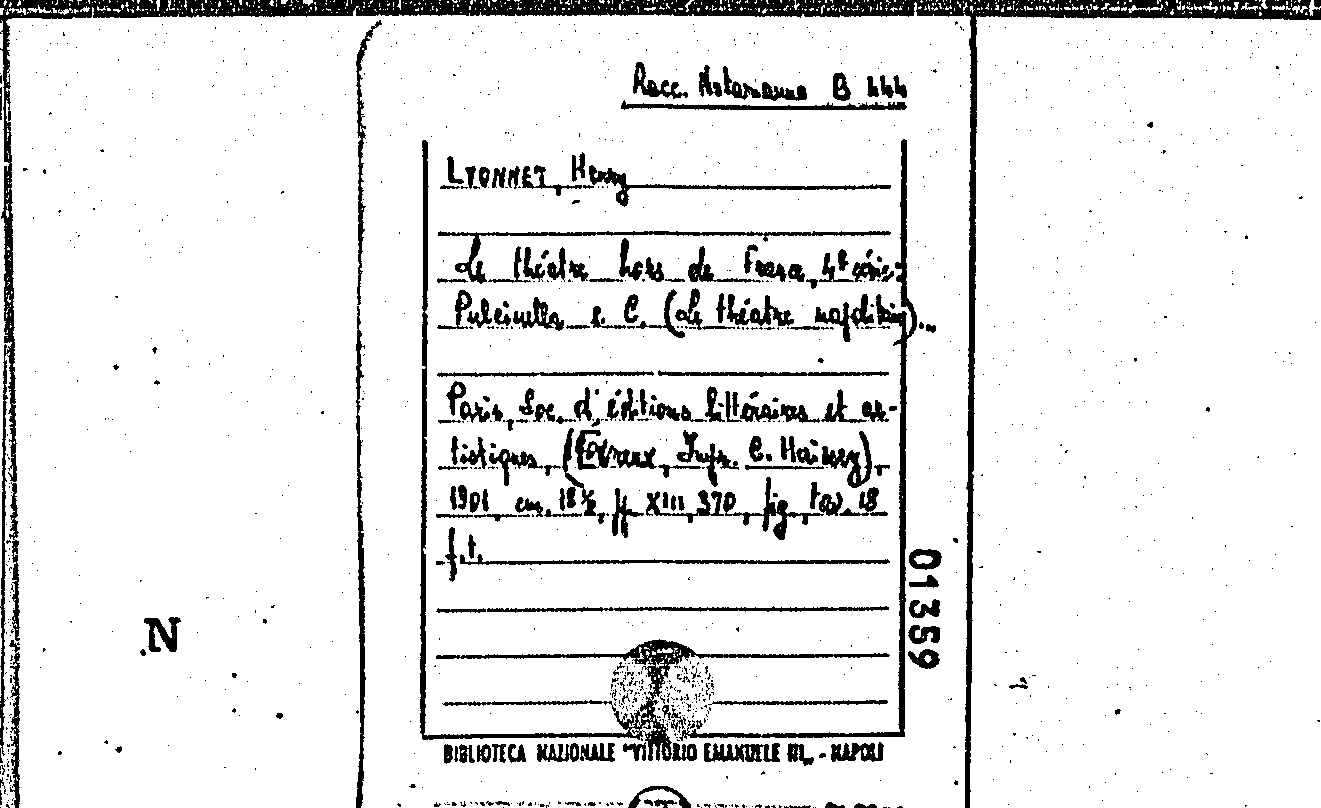 Racc. Notarianna B 444
LYONNET, Henry
Le théatre hors de France, 4e série:
Pulcinella e C. (Le théatre napolitain)...
Paris, Soc. d'éditions littéraires et ar-
tistiques, (Evreux, Impr. C. Haissey),
1901, cm. 18½, pp. XIII, 370, fig., tav. 18
f.t.
01359
N
BIBLIOTECA NAZIONALE "VITTORIO EMANUELE III„ - NAPOLI